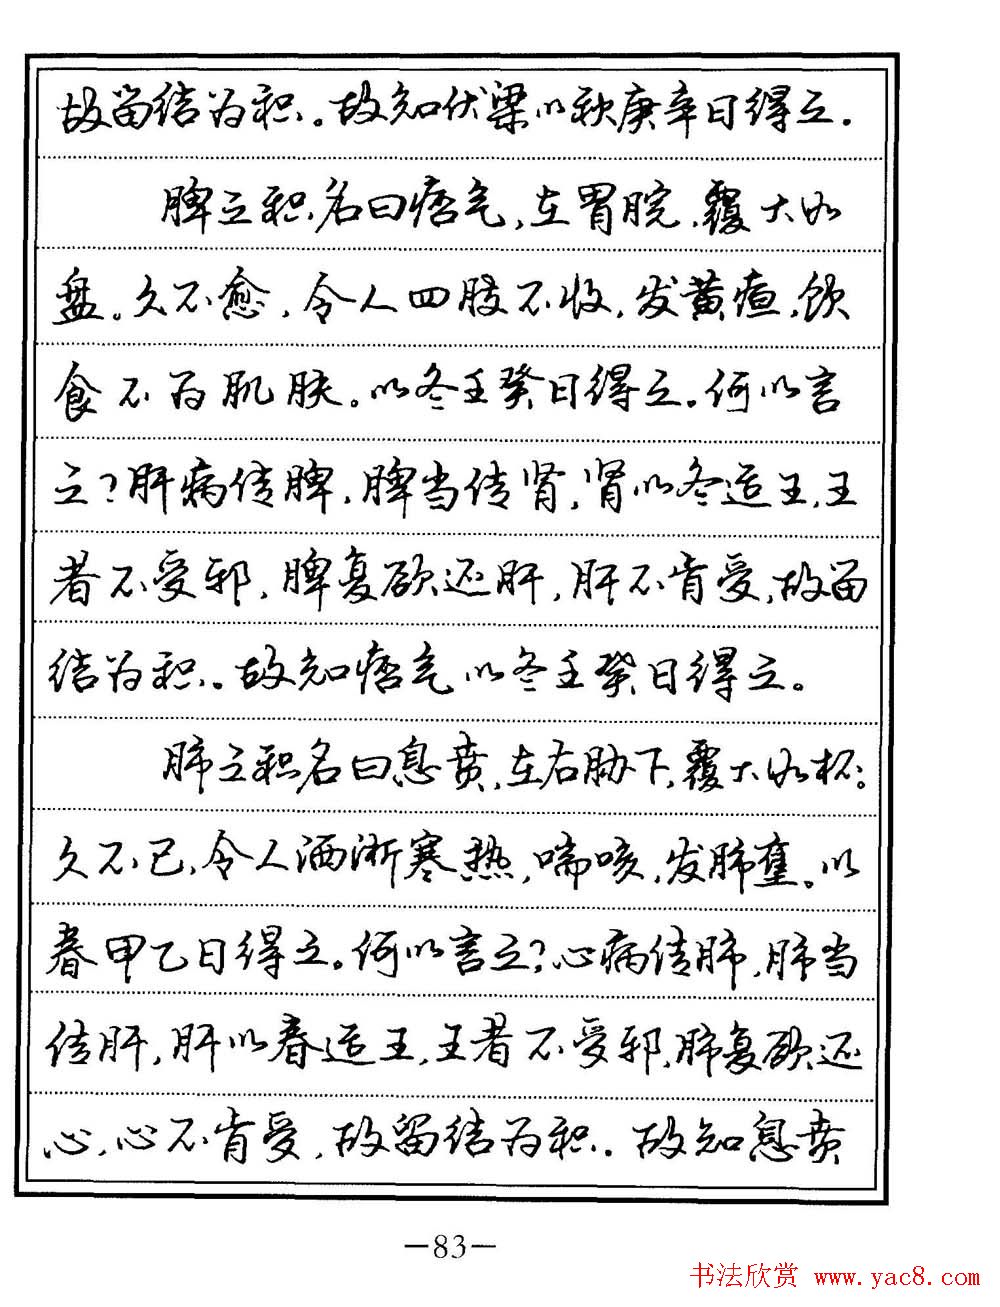 故留结为积。故知伏梁以秋庚辛日得之.
脾之积,名曰痞气,在胃脘,覆大如
盘。久不愈,令人四肢不收,发黄疸,饮
食不为肌肤。以冬壬癸日得之。何以言
之?肝病传脾,脾当传肾,肾以冬适王,王
者不受邪,脾复欲还肝,肝不肯受,故留
结为积。故知痞气以冬壬癸日得之。
肺之积名曰息贲,在右胁下,覆大如杯。
久不已,令人洒淅寒热,喘咳,发肺壅。以
春甲乙日得之。何以言之?心病传肺,肺当
传肝,肝以春适王,王者不受邪,肺复欲还
心,心不肯受,故留结为积。故知息贲
—83—
书法欣赏 www.yac8.com